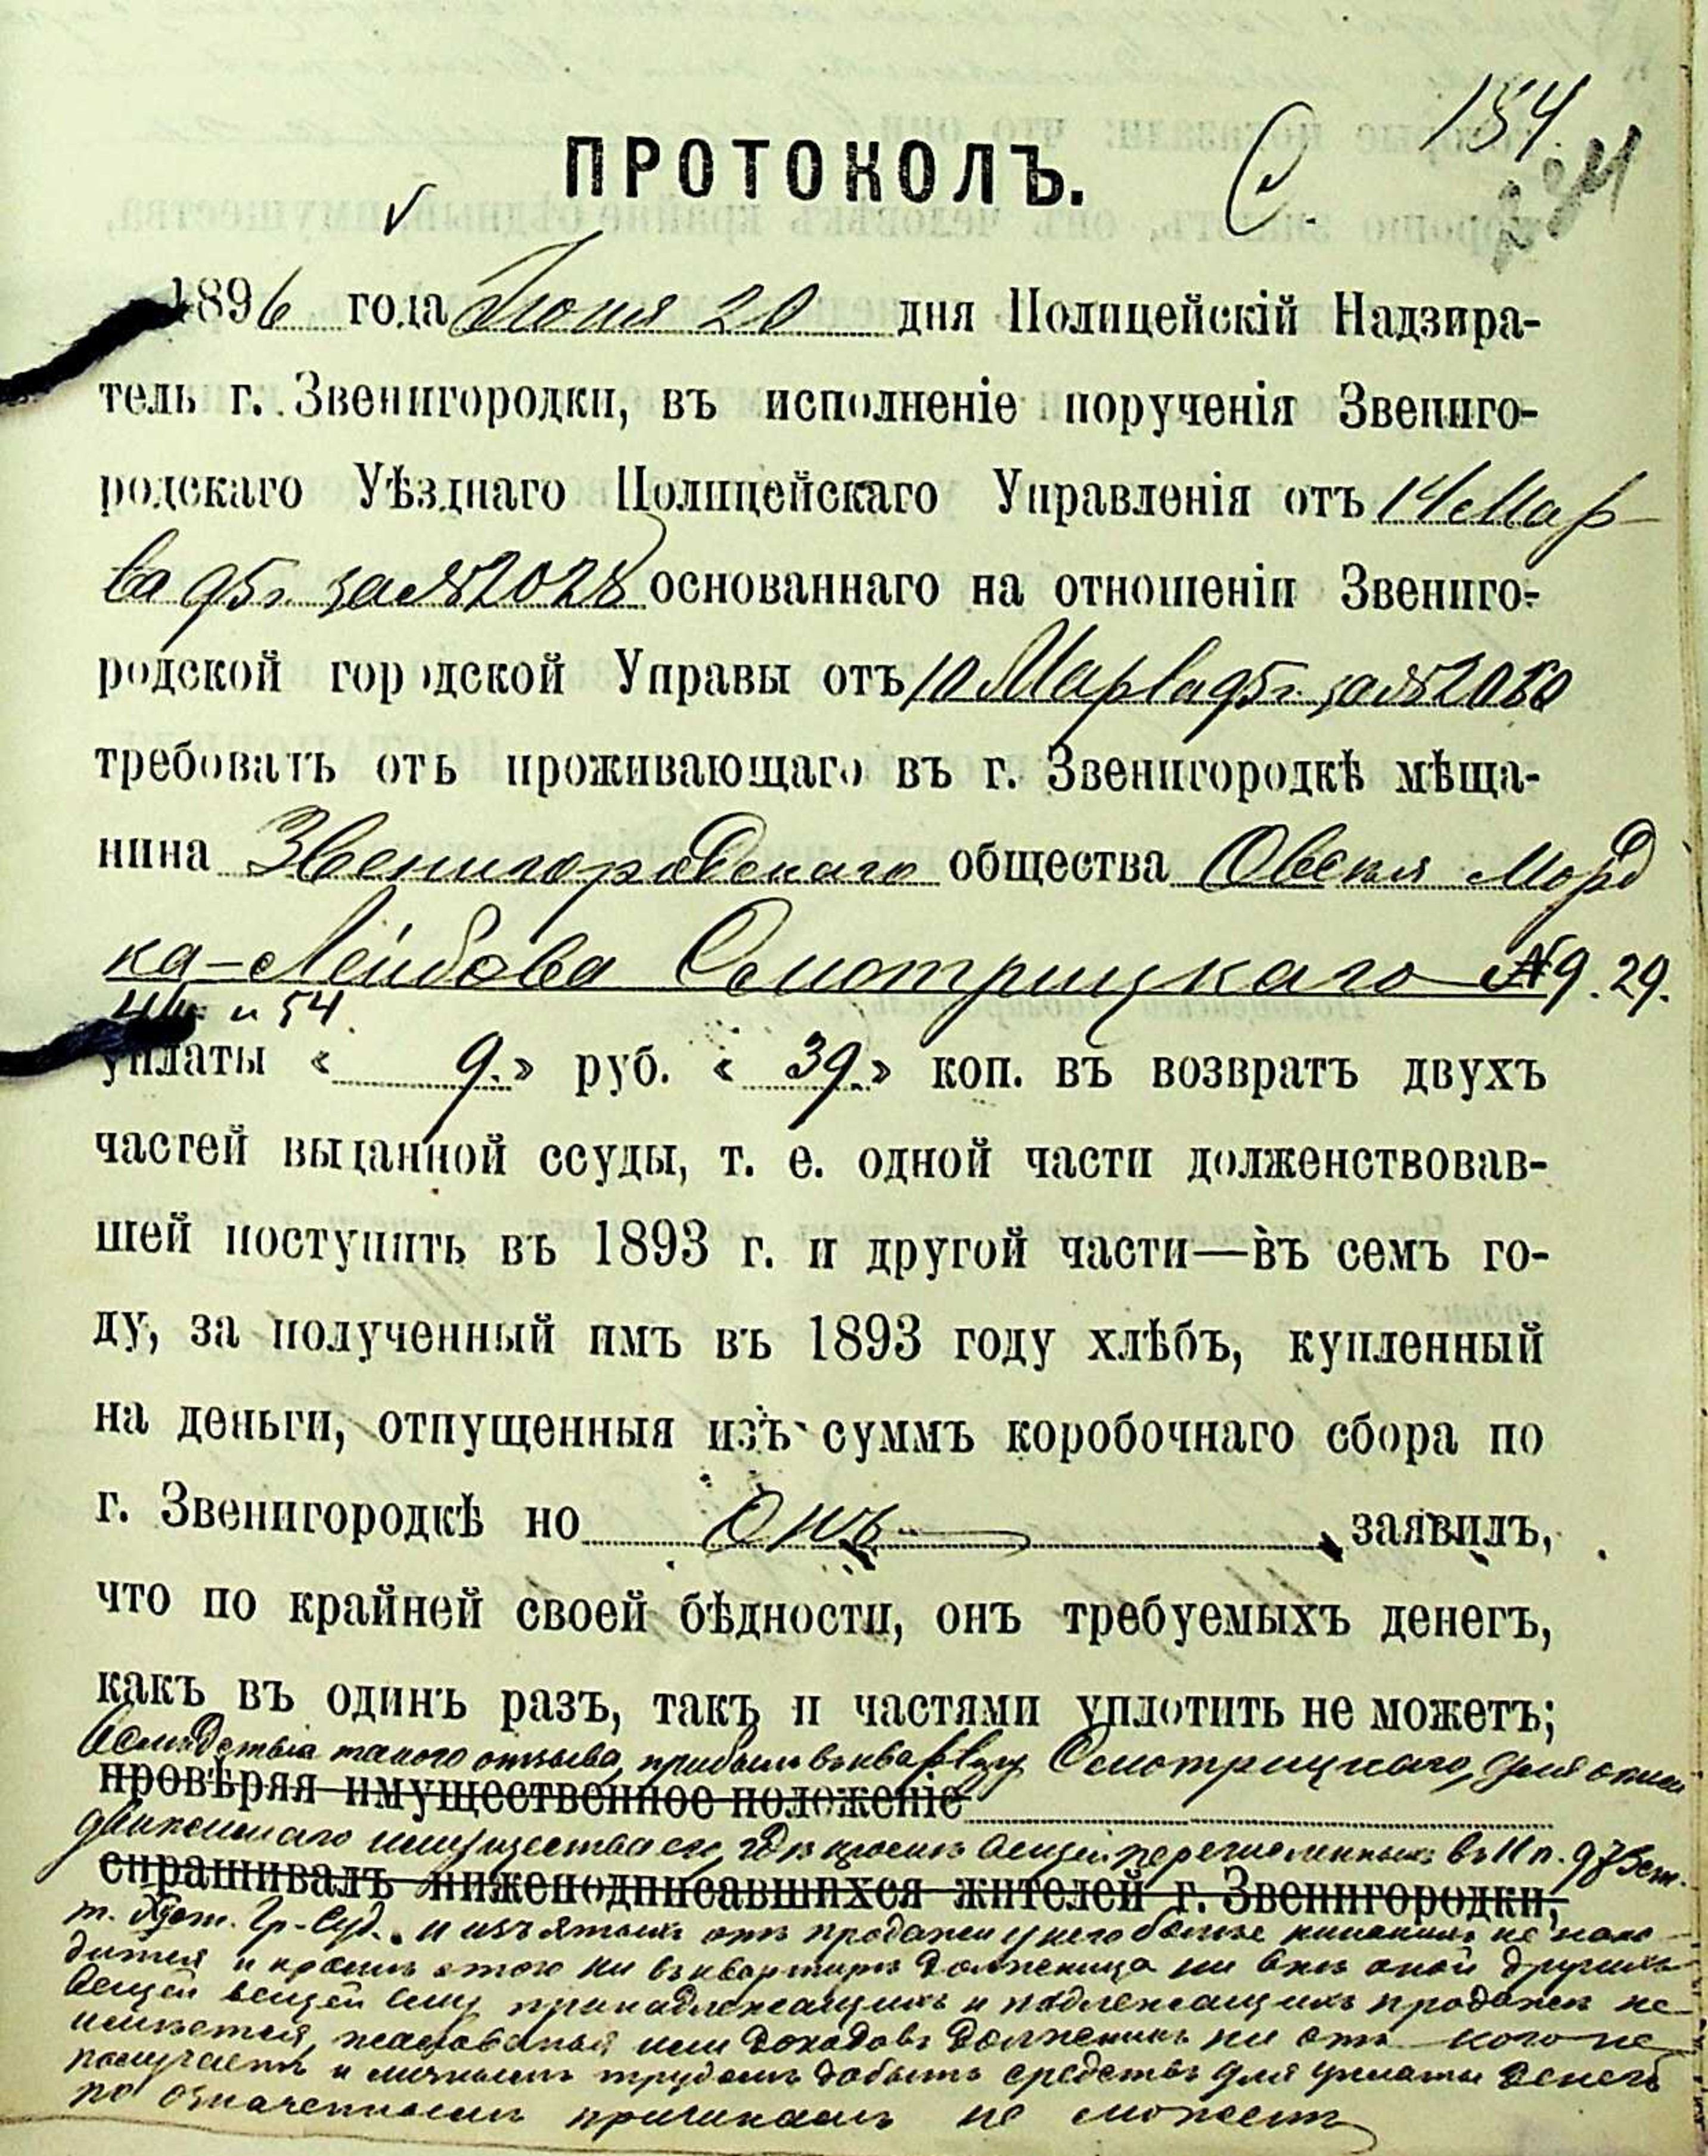 154.
ПРОТОКОЛЪ.
1896 года Іюня 20 дня Полицейскій Надзира-
тель г. Звенигородки, въ исполненіе порученія Звениго-
родскаго Уѣзднаго Полицейскаго Управленія отъ 14 Мар-
та 95 г. за № 2028 основаннаго на отношеніи Звениго-
родской городской Управы отъ 10 Марта 95 г. за № 2060
требовать отъ проживающаго въ г. Звенигородкѣ мѣща-
нина Звенигородскаго общества Овсея Морд
ка-Лейбова Смотрицкаго № 9. 29.
44 и 54.
уплаты « 9. » руб. « 39. » коп. въ возвратъ двухъ
частей выданной ссуды, т. е. одной части долженствовав-
шей поступить въ 1893 г. и другой части—въ семъ го-
ду, за полученный имъ въ 1893 году хлѣбъ, купленный
на деньги, отпущенныя изъ суммъ коробочнаго сбора по
г. Звенигородкѣ но онъ заявилъ,
что по крайней своей бѣдности, онъ требуемыхъ денегъ,
какъ въ одинъ разъ, такъ и частями уплотить не можетъ;
Вслѣдствіе такого отзыва, прибылъ въ квартиру Смотрицкаго, для описи
провѣряя имущественное положеніе
движимаго имущества его, гдѣ кромѣ вещей перечисленныхъ въ II п. 973 ст.
спрашивалъ нижеподписавшихся жителей г. Звенигородки,
т. Уст. Гр. Суд. и изъятыхъ отъ продажи у него болѣе никакихъ не нахо-
дится и кромѣ этого ни въ квартирѣ должника ни внѣ оной другихъ
вещей вещей ему принадлежащихъ и подлежащихъ продажѣ не
имѣется, жалованья или доходовъ должникъ ни отъ кого не
получаетъ и личнымъ трудомъ добыть средствъ для уплаты денегъ
по означеннымъ причинамъ не можетъ